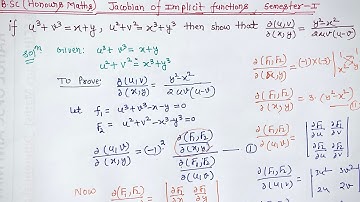 B.Sc (Honours Maths) Jacobian of Implicit functions, Semester-I
if u³+v³=x+y, u²+v²=x³+y³ then show that ∂(u,v)/∂(x,y) = y²-x²/2uv(u-v)
Soln
Given: u³+v³=x+y
u²+v²=x³+y³
To Prove: ∂(u,v)/∂(x,y) = y²-x²/2uv(u-v)
Let f₁ = u³+v³-x-y=0
F₂ = u²+v²-x³-y³=0
∂(u,v)/∂(x,y) = (-1)² ∂(F₁,F₂)/∂(x,y) / ∂(F₁,F₂)/∂(u,v) — ①
Now ∂(F₁,F₂)/∂(x,y) = | ∂F₁/∂x ∂F₁/∂y
∂(F₁,F₂)/∂(x,y) = (-1)×(-3)
∂(F₁,F₂)/∂(x,y) = 3·(y²-x²)
∂(F₁,F₂)/∂(u,v) = | ∂F₁/∂u ∂F₁/∂v ∂F₂/∂u ∂F₂/∂v |
∂(F₁,F₂)/∂(u,v) = | 3u² 3v² 2u 2v